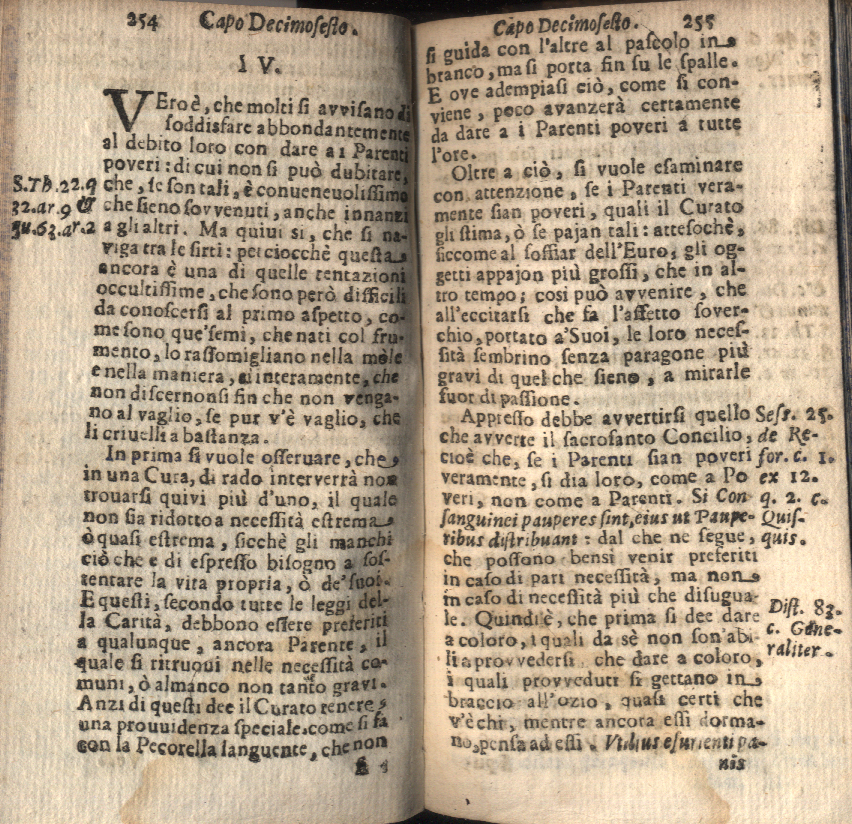 254 Capo Decimosesto.
IV.
VEro è, che molti si avvisano di
soddisfare abbondantemente
al debito loro con dare a i Parenti
poveri: di cui non si può dubitare,
che, se son tali, è convenevolissimo
che sieno sovvenuti, anche innanzi
a gli altri. Ma quivi si, che si na-
viga tra le sirti: perciocchè questa
ancora è una di quelle tentazioni
occultissime, che sono però difficili
da conoscersi al primo aspetto, co-
me sono que'semi, che nati col fru-
mento, lo rassomigliano nella mole
e nella maniera, sì interamente, che
non discernonsi fin che non venga-
no al vaglio, se pur v'è vaglio, che
li crivelli a bastanza.
In prima si vuole osseruare, che
in una Cura, di rado interverrà non
trouarsi quivi più d'uno, il quale
non sia ridotto a necessità estrema
ò quasi estrema, sicchè gli manchi
ciò che e di espresso bisogno a sos-
tentare la vita propria, ò de'suoi.
E questi, secondo tutte le leggi del-
la Carità, debbono essere preferiti
a qualunque, ancora Parente, il
quale si ritruovi nelle necessità co-
muni, ò almanco non tanto gravi.
Anzi di questi dee il Curato tenere
una prouuidenza speciale, come si fa
con la Pecorella languente, che non
S.Th.22.q
32.ar.9 &
qu.63.ar.2
Capo Decimosesto. 255
si guida con l'altre al pascolo in
branco, ma si porta fin su le spalle.
E ove adempiasi ciò, come si con-
viene, poco avanzerà certamente
da dare a i Parenti poveri a tutte
l'ore.
Oltre a ciò, si vuole esaminare
con attenzione, se i Parenti vera-
mente sian poveri, quali il Curato
gli stima, ò se pajan tali: attesochè,
siccome al soffiar dell'Euro, gli og-
getti appajon più grossi, che in al-
tro tempo; così può avvenire, che
all'eccitarsi che fa l'affetto sover-
chio, portato a'Suoi, le loro neces-
sità sembrino senza paragone più
gravi di quel che sieno, a mirarle
fuor di passione.
Appresso debbe avvertirsi quello
che avverte il sacrosanto Concilio,
cioè che, se i Parenti sian poveri
veramente, si dia loro, come a Po
veri, non come a Parenti. Si Con
sanguinei pauperes sint, eius ut Paupe-
ribus distribuant: dal che ne segue,
che possono bensi venir preferiti
in caso di pari necessità, ma non
in caso di necessità più che disugua-
le. Quindi è, che prima si dee dare
a coloro, i quali da sè non son'abi-
li a provvedersi che dare a coloro,
i quali provveduti si gettano in
braccio all'ozio, quasi certi che
v'è chi, mentre ancora essi dorma-
no, pensa ad essi. Utilius esurienti pa-
nis
Sess. 25.
de Re-
for. c. 1.
ex 12.
q. 2. c.
Quis-
quis.
Dist. 82.
c. Gene-
raliter.